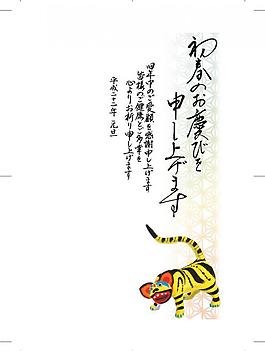 初春のお慶びを
申し上げます
旧年中のご愛顧を感謝申し上げます
皆様のご健康とご多幸を
心よりお祈り申し上げます
平成二十二年 元旦